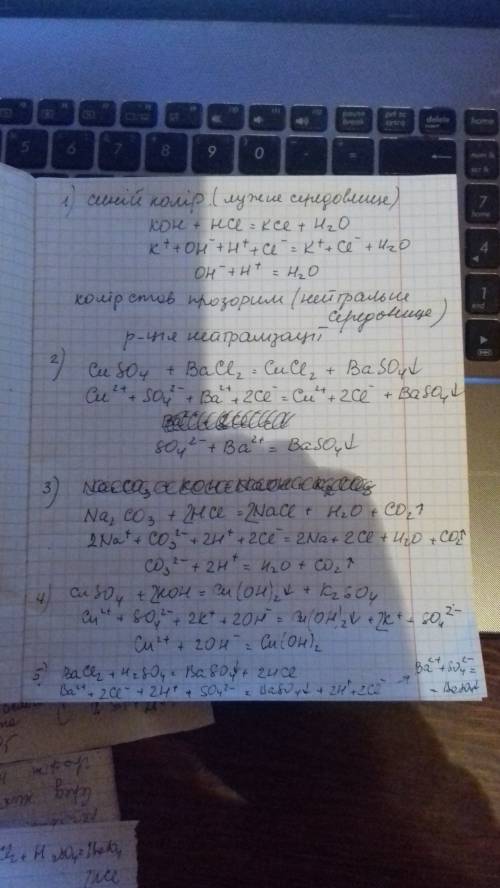 pause break
prt sc
delete
home
5 6 7 8 9 0 - =
num lk
scr lk
7 home
4
1 end
1) синій колір (лужне середовище)
KOH + HCl = KCl + H2O
K⁺ + OH⁻ + H⁺ + Cl⁻ = K⁺ + Cl⁻ + H2O
OH⁻ + H⁺ = H2O
колір став прозорим (нейтральне
середовище)
р-ція неатралізації
2) CuSO4 + BaCl2 = CuCl2 + BaSO4↓
Cu²⁺ + SO4²⁻ + Ba²⁺ + 2Cl⁻ = Cu²⁺ + 2Cl⁻ + BaSO4↓
SO4²⁻ + Ba²⁺ = BaSO4↓
3)
Na2CO3 + 2HCl = 2NaCl + H2O + CO2↑
2Na⁺ + CO3²⁻ + 2H⁺ + 2Cl⁻ = 2Na + 2Cl + H2O + CO2↑
CO3²⁻ + 2H⁺ = H2O + CO2↑
4) CuSO4 + 2KOH = Cu(OH)2↓ + K2SO4
Cu²⁺ + SO4²⁻ + 2K⁺ + 2OH⁻ = Cu(OH)2↓ + 2K⁺ + SO4²⁻
Cu²⁺ + 2OH⁻ = Cu(OH)2
5) BaCl2 + H2SO4 = BaSO4↓ + 2HCl
Ba²⁺ + 2Cl⁻ + 2H⁺ + SO4²⁻ = BaSO4↓ + 2H⁺ + 2Cl⁻ → Ba²⁺ + SO4²⁻ =
= BaSO4↓